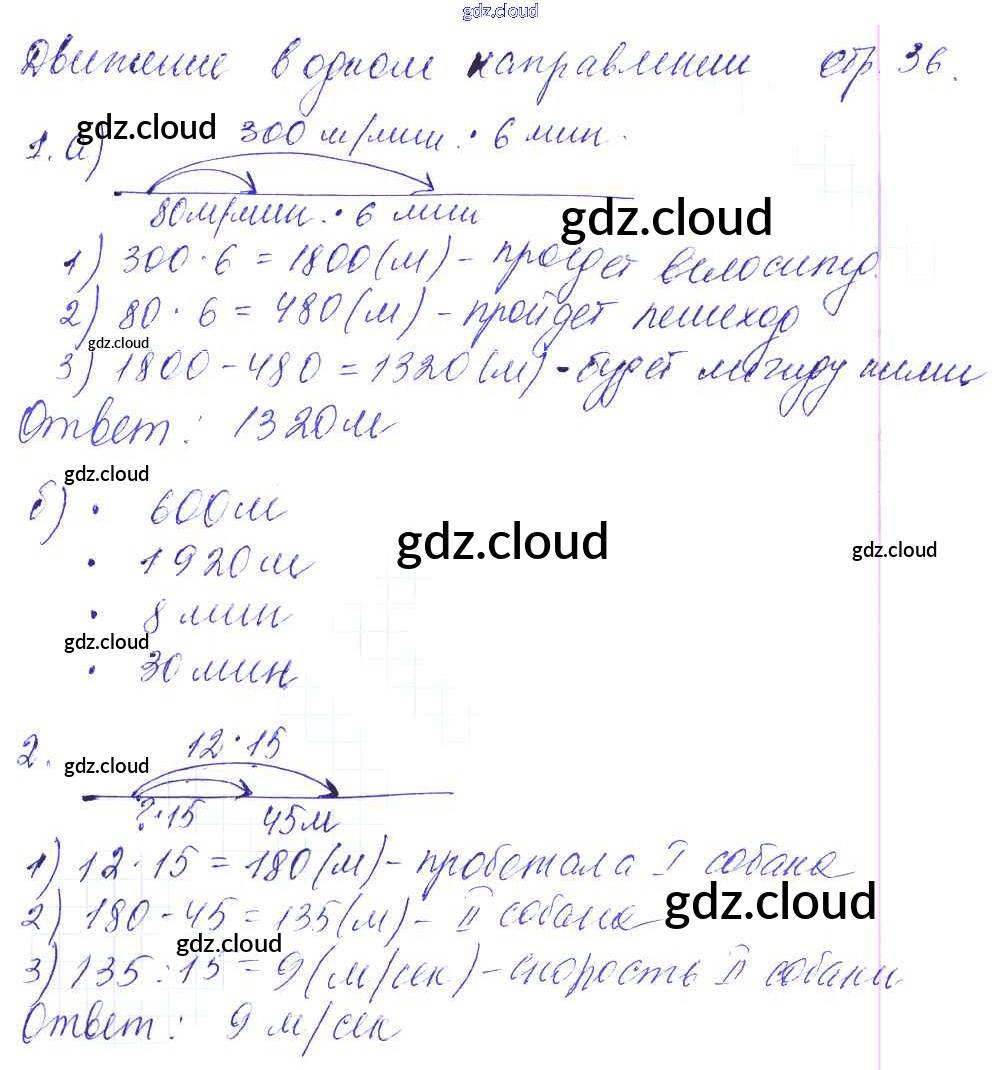 gdz.cloud
Движение в одном направлении стр. 36.
1. а) gdz.cloud 300 м/мин · 6 мин.
80м/мин. · 6 мин gdz.cloud
1) 300 · 6 = 1800 (м) - проедет велосипед.
2) 80 · 6 = 480 (м) - пройдет пешеход
gdz.cloud
3) 1800 - 480 = 1320 (м) - будет между ними
Ответ: 1320м
gdz.cloud
б) · 600м
gdz.cloud gdz.cloud
· 1920м
· 8 мин
gdz.cloud
· 30 мин
2. gdz.cloud 12 · 15
? · 15 45м
1) 12 · 15 = 180 (м) - пробежала I собака
2) 180 - 45 = 135 (м) - II собака gdz.cloud
gdz.cloud
3) 135 : 15 = 9 (м/сек) - скорость II собаки
Ответ: 9 м/сек